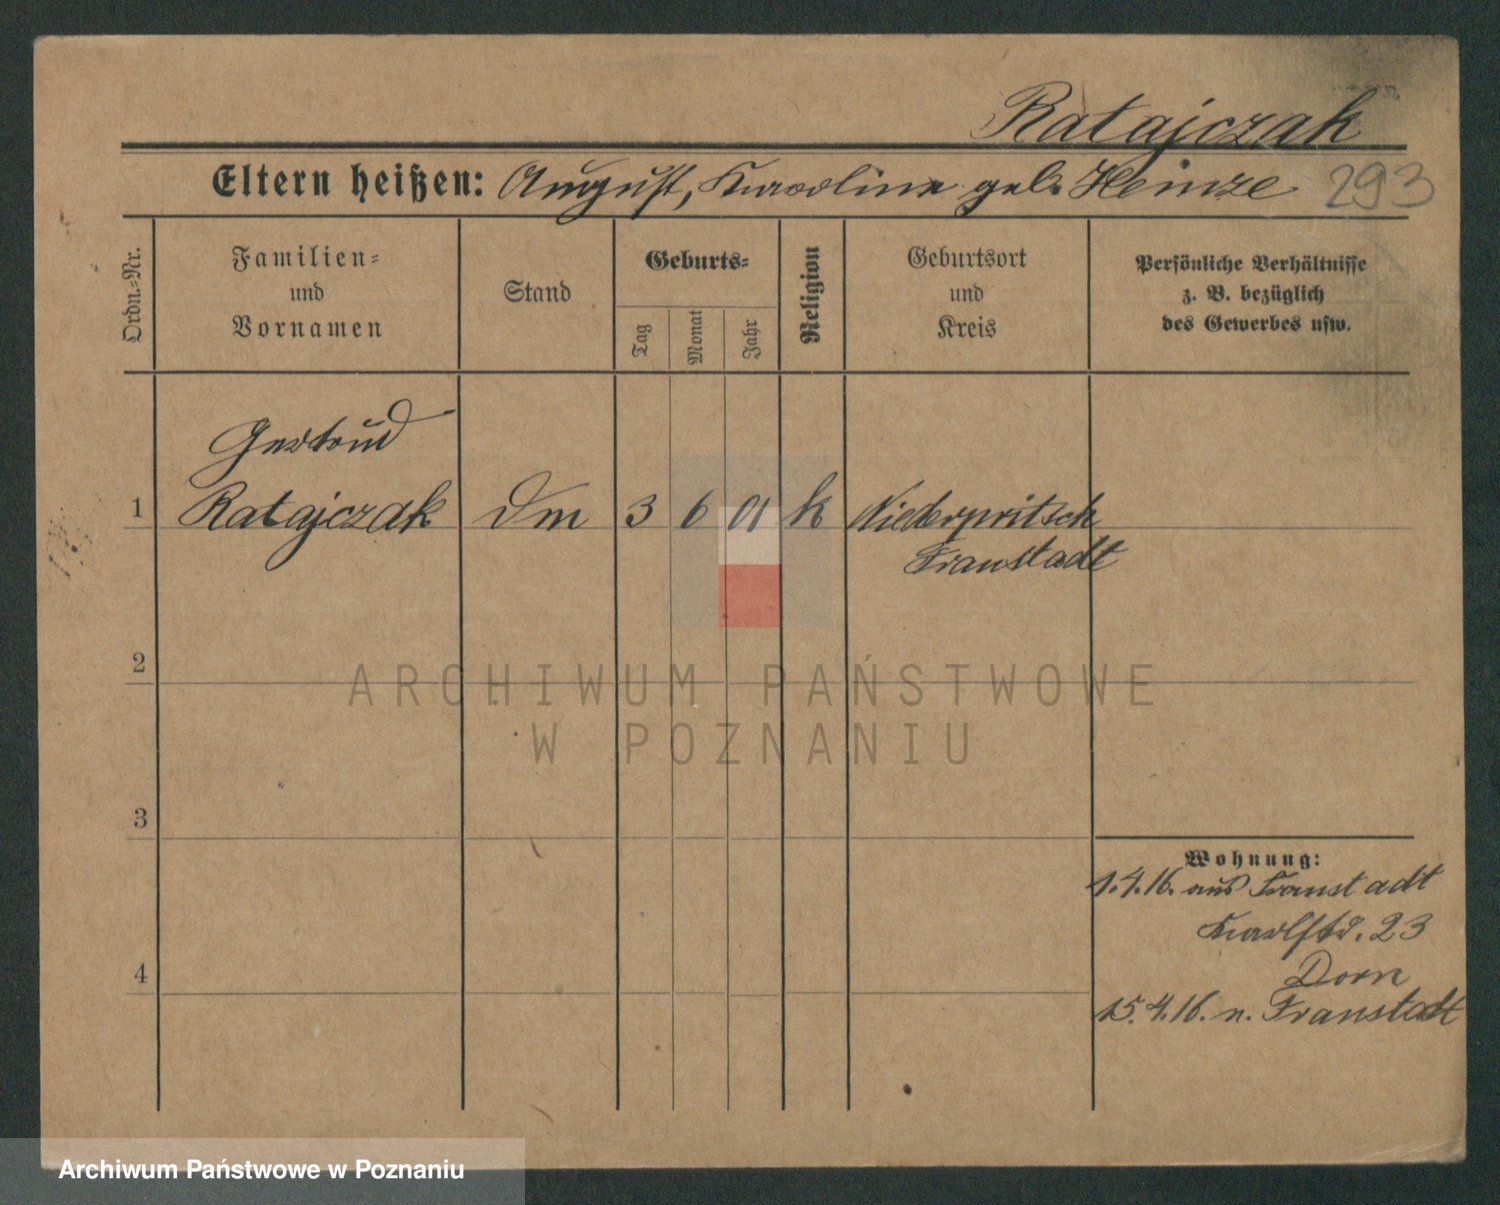 Ratajczak
Eltern heißen: August, Karoline geb. Heinze 293
Ordn.-Nr.
Familien-
und
Vornamen
Stand
Geburts-
Tag
Monat
Jahr
Religion
Geburtsort
und
Kreis
Persönliche Verhältnisse
z. B. bezüglich
des Gewerbes usw.
Gertrud
1 Ratajczak Dm 3 6 01 k Niederpritsch
Fraustadt
2
ARCHIWUM PAŃSTWOWE
W POZNANIU
3
Wohnung:
1.4.16. aus Fraustadt
Karlstr. 23
Dorn
4
15.4.16. n. Fraustadt
Archiwum Państwowe w Poznaniu